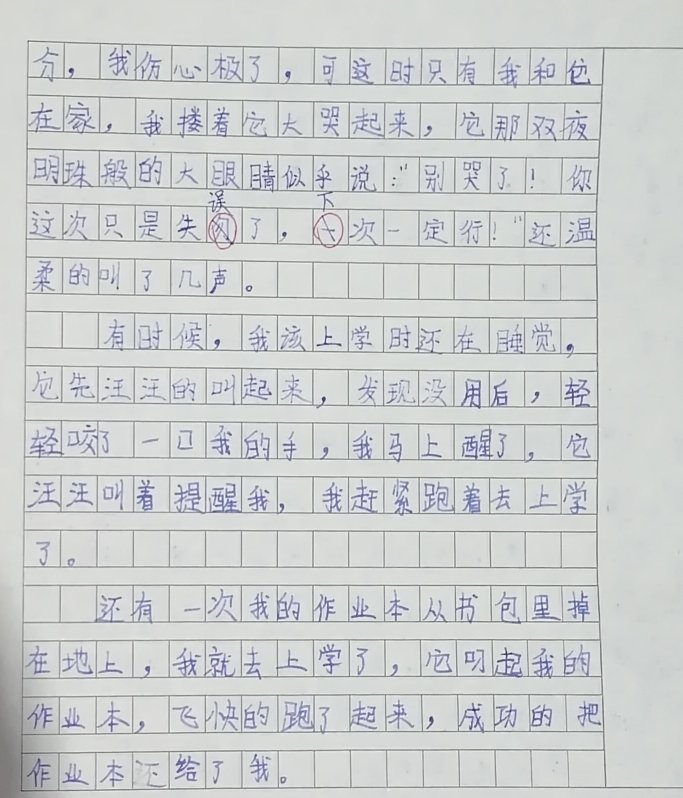 分，我伤心极了，可这时只有我和它
在家，我搂着它大哭起来，它那双夜
明珠般的大眼睛似乎说："别哭了！你
误 下
这次只是失了，次一定行！"还温
柔的叫了几声。
有时候，我该上学时还在睡觉，
它先汪汪的叫起来，发现没用后，轻
轻咬了一口我的手，我马上醒了，它
汪汪叫着提醒我，我赶紧跑着去上学
了。
还有一次我的作业本从书包里掉
在地上，我就去上学了，它叼起我的
作业本，飞快的跑了起来，成功的把
作业本还给了我。